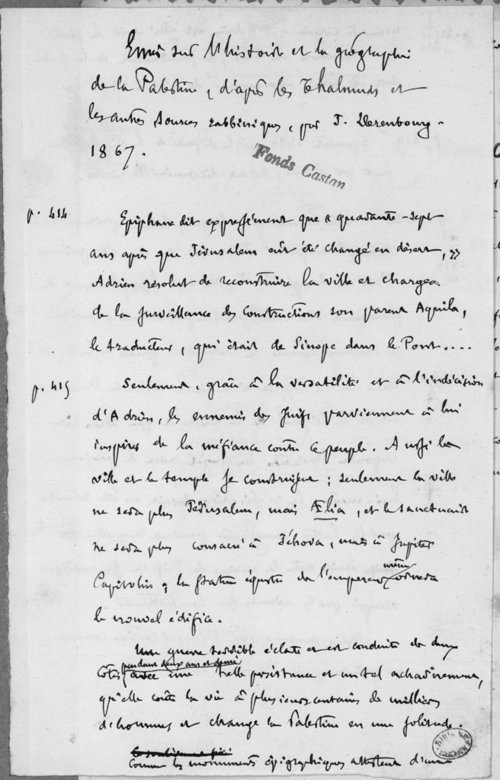 Essai sur l'histoire et la géographie
de la Palestine, d'après les Thalmuds et
les autres sources rabbiniques, par J. Derenbourg-
1867.
Fonds Castan
p. 414
Epiphane dit expressément que « quarante-sept
ans après que Jérusalem eût été changé en désert, »
Adrien résolut de reconstruire la ville et chargea
de la surveillance des constructions son parent Aquila,
le traducteur, qui était de Sinope dans le Pont....
p. 415
Seulement, grâce à la versatilité et à l'indécision
d'Adrien, les ennemis des Juifs parviennent à lui
inspirer de la méfiance contre ce peuple. Aussi la
ville et le temple se construisent ; seulement la ville
ne sera plus Jérusalem, mais Ælia, et le sanctuaire
ne sera plus consacré à Jéhova, mais à Jupiter
Capitolin ; la statue équestre de l'empereur même ornera
le nouvel édifice.
Une guerre terrible éclate et est conduite des deux
côtés pendant deux ans et demi avec une telle persistance et un tel acharnement,
qu'elle coûte la vie à plusieurs centaines de milliers
d'hommes et change la Palestine en une solitude.
Comme les monuments épigraphiques attestent d'une